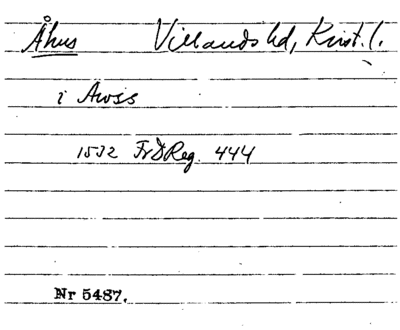 Åhus Villands hd, Krist. l.
i Awss
1532 FrDReg. 444
Nr 5487.